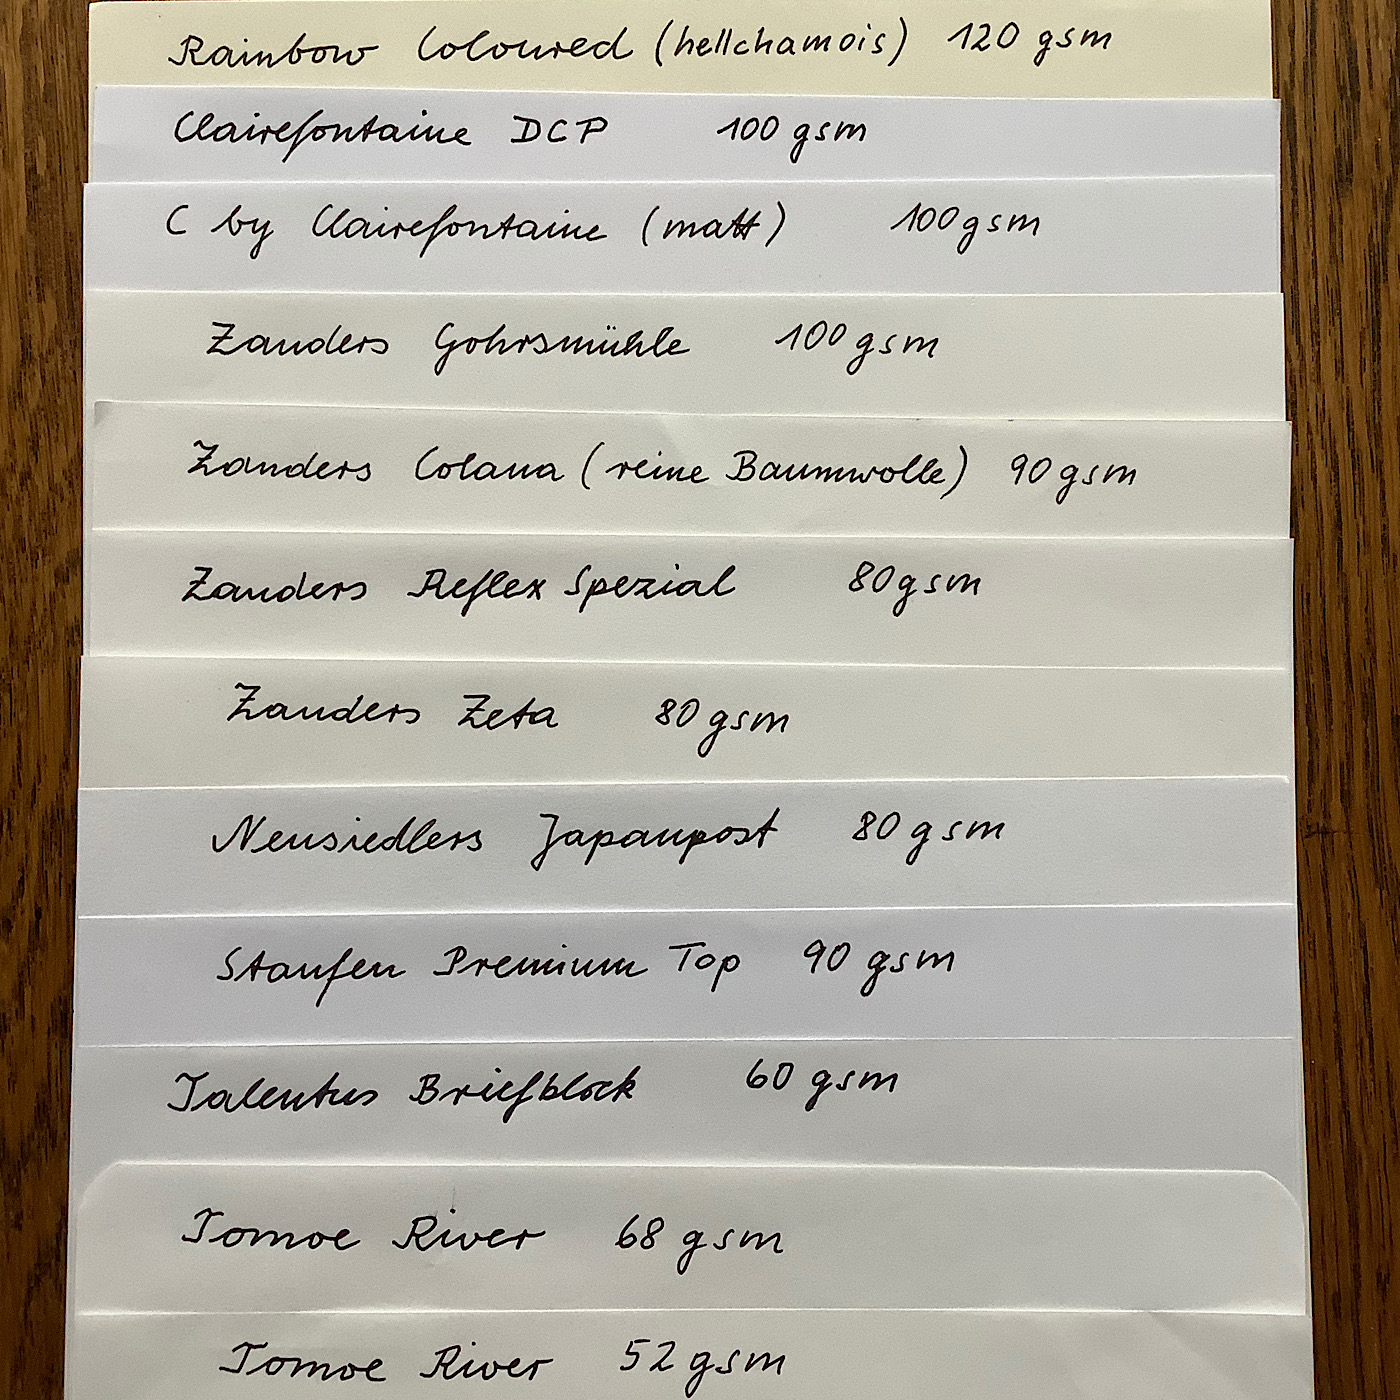 Rainbow Coloured (hellchamois) 120 gsm
Clairefontaine DCP 100 gsm
C by Clairefontaine (matt) 100 gsm
Zanders Gohrsmühle 100 gsm
Zanders Colana (reine Baumwolle) 90 gsm
Zanders Reflex Spezial 80 gsm
Zanders Zeta 80 gsm
Neusiedlers Japanpost 80 gsm
Staufen Premium Top 90 gsm
Talentus Briefblock 60 gsm
Tomoe River 68 gsm
Tomoe River 52 gsm